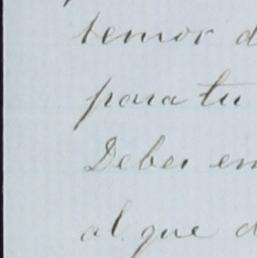 temor d
para tu
Debes en
al que d